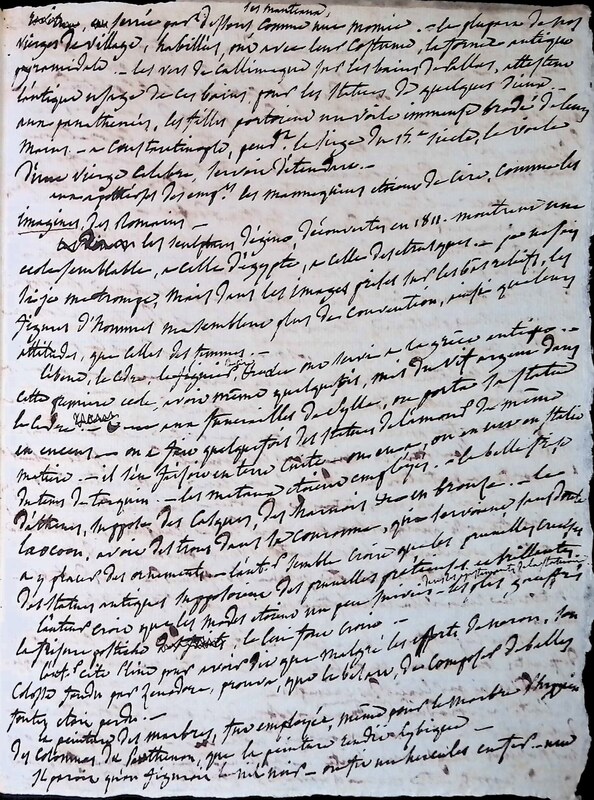 les manteaux,
serrée par dessous comme une momie. – la plupart de nos
vierges de village, habillées, ont avec leur costume, la forme antique
pyramidale. – les vers de Callimaque sur les bains de Pallas, attestent
l'antique usage de ces bains, pour les statues de quelques dieux. –
aux panathenées, les filles portoient un voile immense brodé de leurs
mains. – a Constantinople, pendt le siege du 15.me siecle, le voile
d'une vierge celebre, servoit d'étendard. –
aux apothéoses des emprs les mannequins etoient de cire, comme les
imagines, des Romains. –
les sculptures d'égine, découvertes en 1811. montrent une
ecole semblable, a celle d'égypte, a celle des etrusques. – je ne sais
si je me trompe, mais dans les images peintes sur les bas reliefs, les
figures d'hommes me semblent plus de convention, ainsi que leurs
attitudes, que celles des femmes. –
l'ébene, le cedre, ont servi a la grèce antique. –
cette premiere ecole, a voir même quelquefois, mis du vif argent dans
le cedre. – aux funerailles de Sylla, on porta sa statue
en encens – on a fait quelquefois des statues de l'amour de même
matiere. – il s'en fit souvent en terre cuite – on en a, on en vit en Italie
du tems de tarquin. – les metaux etoient employés. – la belle frise
d'athenes, suppose des casques, des harnois en bronze. – le
laocoon, avoit des trous dans la couronne, qui servoient sans doute
a y placer des ornemens – l'autr semble croire que les prunelles creuses
des statues antiques supposoient des prunelles précieuses et brillantes.
l'auteur croit que les modes etoient un peu suivies
la frisure postiche le leur fait croire –
l'autr cite Pline pour avoir dit que malgré les efforts de neron, son
colosse fondu par Zenodore, prouva, que le bel art, de composer de belles
fontes etoit perdu. –
la peinture des marbres, fut employée, même pour le marbre
des colonnes du Parthenon, que la peinture rendit lybique –
il paroit qu'on figuroit le nil noir – on fit un hercules en fer – une